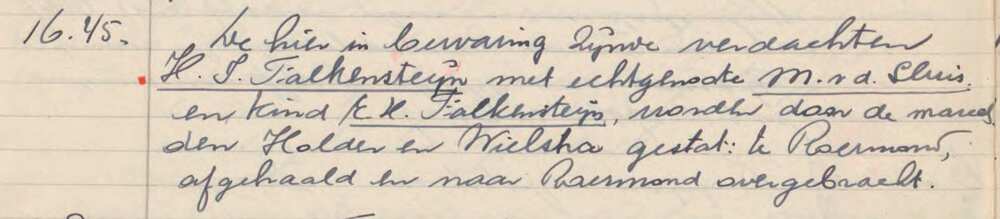 16.45. De hier in bewaring zijnde verdachten
H. S. Falkensteijn met echtgenoote M. v.d. Sluis.
en kind E. H. Falkensteijn, worden door de marech.
den Holder en Wielsha gestat: te Roermond,
afgehaald en naar Roermond overgebracht.